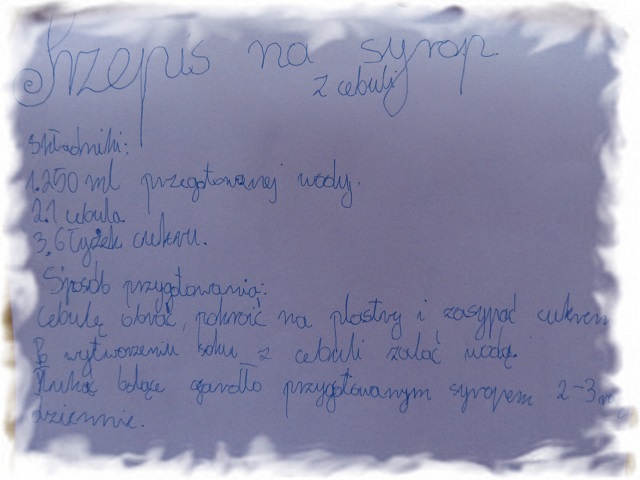 Przepis na syrop
z cebuli
Składniki:
1. 250 ml przegotowanej wody.
2. 1 cebula.
3. 6 łyżek cukru.
Sposób przygotowania:
Cebulę obrać, pokroić na plastry i zasypać cukrem
Po wytworzeniu soku z cebuli zalać wodą.
Płukać bolące gardło przygotowanym syropem 2-3
dziennie.